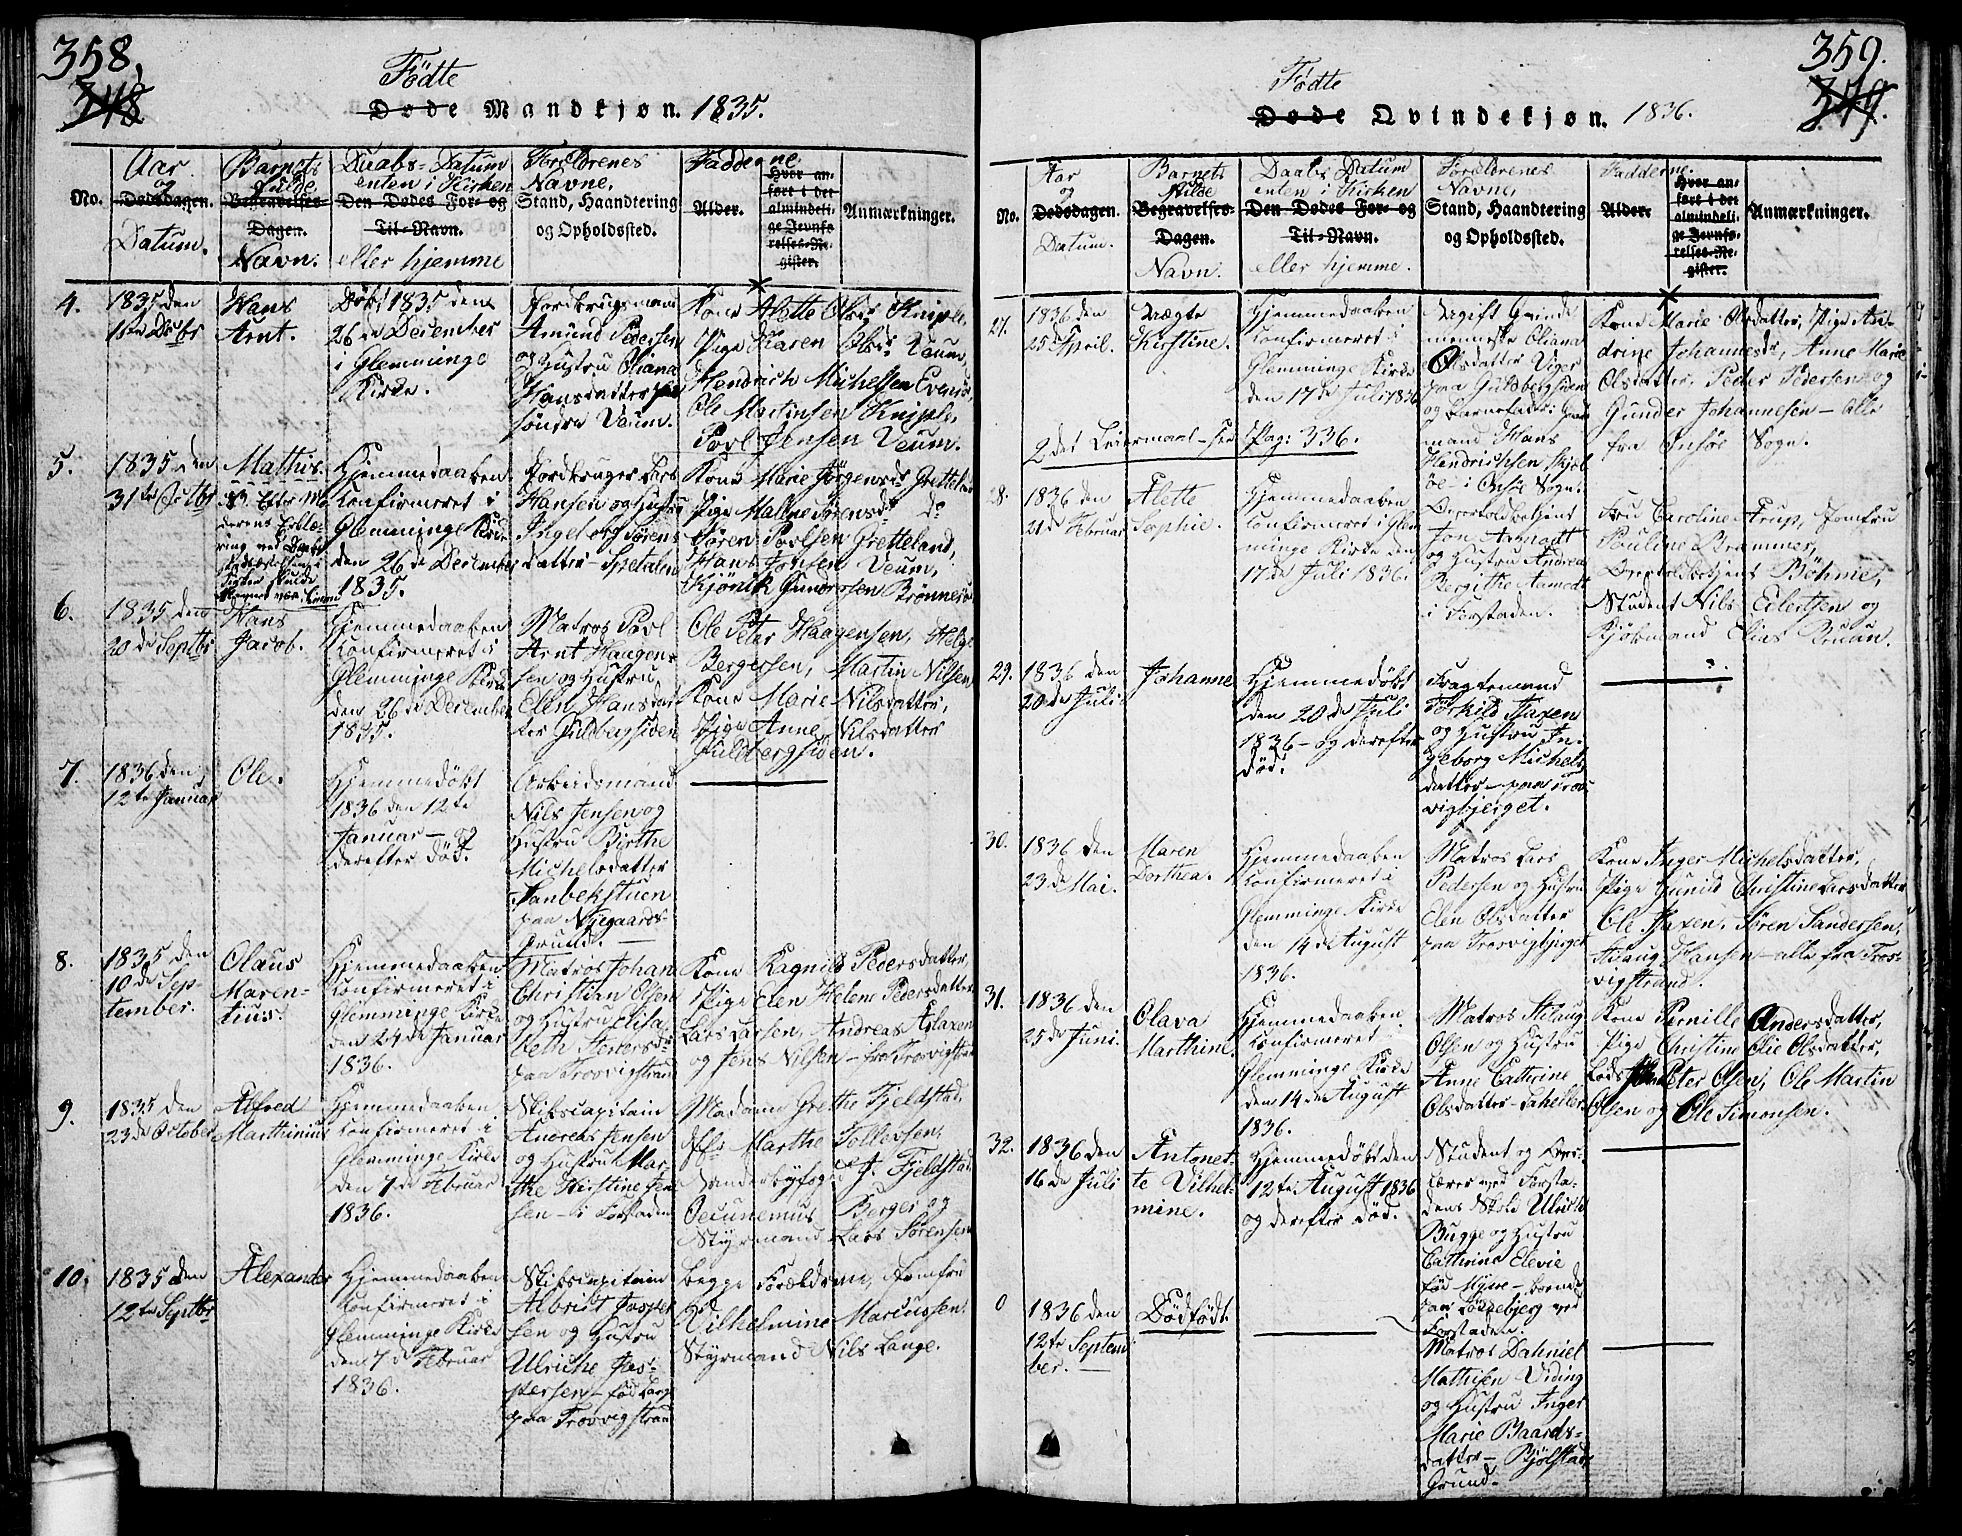 358.
348
Födte
Døde Mandkjøn. 1835.
No.
Aar og
Dødsdagen.
Datum.
Barnets fulde
Begravelses-
Dagen.
Navn.
Daabs-Datum
enten i Kirken
Den Dødes For- og
Til-Navn.
eller hjemme
Forældrenes
Navne,
Stand, Haandtering
og Opholdssted.
Fadderne
Alder.
Hvor an-
ført i det
almindeli-
ge Jevnfø-
relses-Re-
gister.
Anmærkninger.
4.
1835 den
18de Decbr
Hans
Arnt.
Døbt 1835 den
26de December
i Glemminge
Kirke.
Jordbrugsmand
Amund Pedersen
og Hustru Oliana
Hansdatter paa
söndre Veum.
Kone Alette Olsd. Kniple,
Pige Karen Olsd. Veum,
Hendrich Michelsen Evenrö,
Ole Martinsen Kniple,
Povl Jensen Veum.
5.
1835 den
31te Octbr
Mathis.
NB. Efter Mo
derens Erklæ-
ring ved Daabs
Hjemmedaaben
Konfirmeret i
Glemminge Kirke
den 26de December
1835.
Jordbruger Lars
Hansen og Hustru
Ingeborg Sörens
datter - Spetalen
Kone Marie Jörgensd. Gretteland
Pige Malene Sörensd. do
Sören Povlsen Gretteland,
Hans Jonsen Veum,
Kjönik Gundersen Brönnerö
6.
1835 den
20de Septbr
Hans
Jacob.
Hjemmedaaben
Konfirmeret i
Glemminge Kirke
den 26de December
1835.
Matros Povl
Arnt Haagen-
sen og Hustru
Elen Hansdat-
ter Guldbergsiden
Ole Peter Haagensen, Helge
Bergersen, Martin Nilsen,
Kone Marie Nilsdatter,
Pige Anne Nilsdatter
Guldbergsiden.
7.
1836 den
12te Januar
Ole.
Hjemmedöbt
1836 den 12te
Januar - og
derefter död.
Arbeidsmand
Nils Jensen og
Hustru Birthe
Michelsdatter
Sanbekstuen
paa Nygaards
Grund.
8.
1835 den
10de Sep-
tember.
Olaus
Maren-
tius.
Hjemmedaaben
Konfirmeret i
Glemminge Kirke
den 24de Januar
1836.
Matros Johan
Christian Olsen
og Hustru Elisa-
beth Iversd.
paa Trosvigstrand
Kone Ragnild Pedersdatter,
Pige Elen Helene Pedersdatter
Lars Larsen, Andreas Aslaxen
og Jens Nilsen - fra Trosvigstrand
9.
1835 den
23de October
Alfred
Marthinius
Hjemmedaaben
Konfirmeret i
Glemminge Kirke
den 7de Februar
1836.
Skibscapitain
Andreas Jensen
og Hustru Mar-
the Kirstine Jen
sen - i Forstaden
Madame Grethe Fjeldstad,
Jfr. Marthe Tollevsen,
Sandenbyfoged J. Fjeldstad
Oecunemus Berger og
Styrmand Lars Sörensen
10.
1835 den
12te Septbr
Alexander
Hjemmedaaben
Konfirmeret i
Glemminge Kirke
den 7de Februar
1836.
Skibscapitain
Albrict Jasper
sen og Hustru
Ulriche Jas-
persen - föd Lang
paa Trosvigstrand
begge Forældrene, Jomfru
Vilhelmine Marcussen,
Styrmand Nils Lange.
359.
349.
Födte
Døde Qvindekjøn. 1836.
No.
Aar
og
Dødsdagen.
Datum.
Barnets
fulde
Begravelses-
Dagen.
Navn.
Daabs Datum
enten i Kirken
Den Dødes For- og
Til-Navn.
eller hjemme.
Forældrenes
Navne,
Stand, Haandtering
og Opholdssted.
Fadderne.
Alder.
Hvor an-
ført i det
almindeli-
ge Jevnfø-
relses-Re-
gister.
Anmærkninger.
27.
1836 den
25de April.
Uægte
Kirstine.
Hjemmedaaben
Konfirmeret i
Glemminge Kirke
den 17de Juli 1836
2det Leiermaal - see Pag: 336.
Ugift Qvinde
menneske Oliana
Olsdatter Viger
paa Guldbergsiden
og Barnefader: Gaard
mand Hans
Hendrichsen
i Onsöe Sogn.
Kone Marie Olsdatter, Pige An-
drine Johannesd., Anne Marie
Olsdatter, Peder Pedersen og
Gunder Johannesen - alle
fra Onsöe Sogn.
28.
1836 den
21de Februar
Alette
Sophie.
Hjemmedaaben
Konfirmeret i Glem
minge Kirke den
17de Juli 1836.
Overtoldbetjent
Jon Aamodt
og Hustru Andrea
Bergitte Aamodt
i Forstaden.
Fru Caroline Arup, Jomfru
Pauline Brammer,
Overtoldbetjent Böhme,
Student Nils Eilertsen og
Kjöbmand Elias Bruun.
29.
1836 den
20de Juli
Johanne
Hjemmedöbt
den 20de Juli
1836 - og derefter
död.
Fragtemand
Törkild Aaxen
og Hustru In-
geborg Michels
datter - paa Tros-
vigbjerget.
30.
1836 den
23de Mai.
Maren
Dorthea.
Hjemmedaaben
Konfirmeret i
Glemminge Kirke
den 14de August
1836.
Matros Lars
Pedersen og Hustru
Elen Olsdatter
paa Trosvigbjerget
Kone Inger Michelsdatter,
Pige Gunild Christine Larsdatter
Ole Aaxen, Sören Sandersen,
Aslaug Hansen - alle fra Tros-
vigstrand.
31.
1836 den
25de Juni.
Olava
Marthine.
Hjemmedaaben
Konfirmeret i
Glemminge Kirke
den 14de August
1836.
Matros Aslaug
Olsen og Hustru
Anne Cathrine
Olsdatter - Laheller
Kone Pernille Andersdatter,
Pige Christine Elie Olsdatter,
Lods Peter Olsen, Ole Martin
Olsen og Ole Simonsen.
32.
1836 den
16de Juli
Antonet-
te Vilhel-
mine.
Hjemmedöbt den
12te August 1836
og derefter död.
Student og Over-
lærer ved Forsta-
dens Skole Ulrich
Bugge og Hustru
Cathrine Elevie
föd Mysse - boende
paa Lökkebjerg ved
Forstaden.
0
1836 den
12te Septem
ber.
Dödfödt.
Matros Dahniel
Mathisen Viding
og Hustru Inger
Marie Baards-
datter - Bjölstad
Grund.